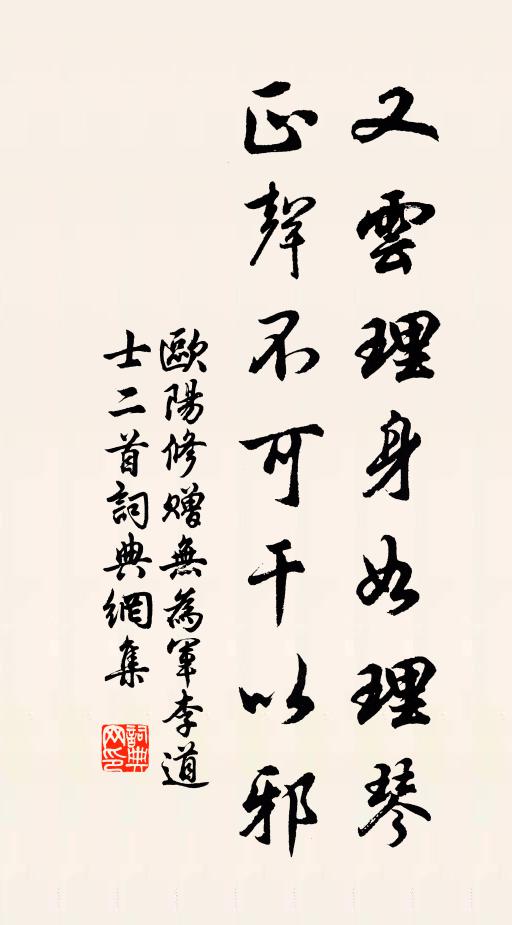 又雲理身如理琴
正聲不可干以邪
歐陽修贈無為軍李道
士二首詞典網集
詞典網印